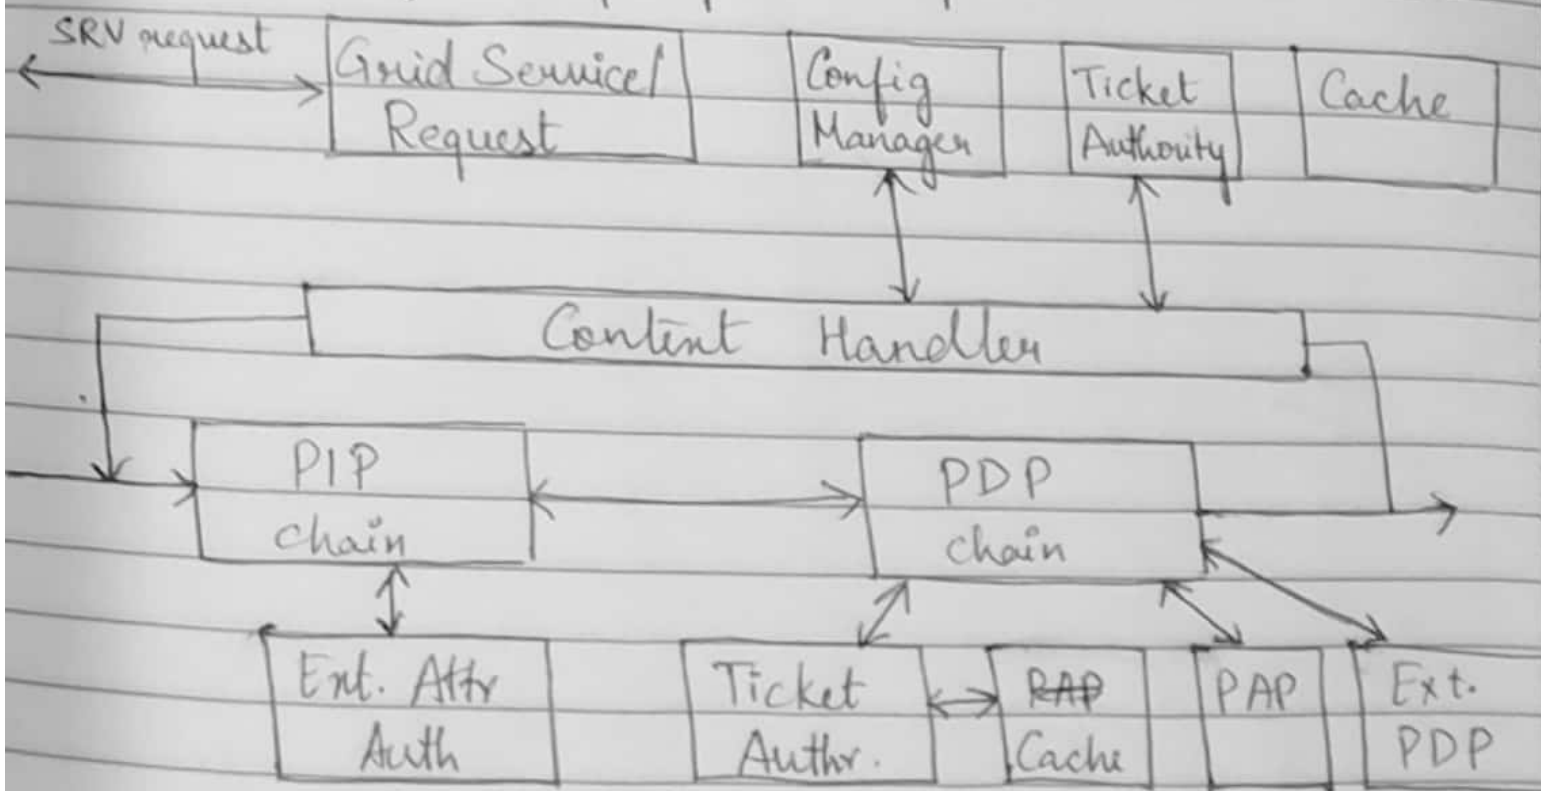 SRV request
Grid Service/
Request
Config
Manager
Ticket
Authority
Cache
Content Handler
PIP
chain
PDP
chain
Ext. Attr
Auth
Ticket
Authr.
PAP
Cache
PAP
Ext.
PDP